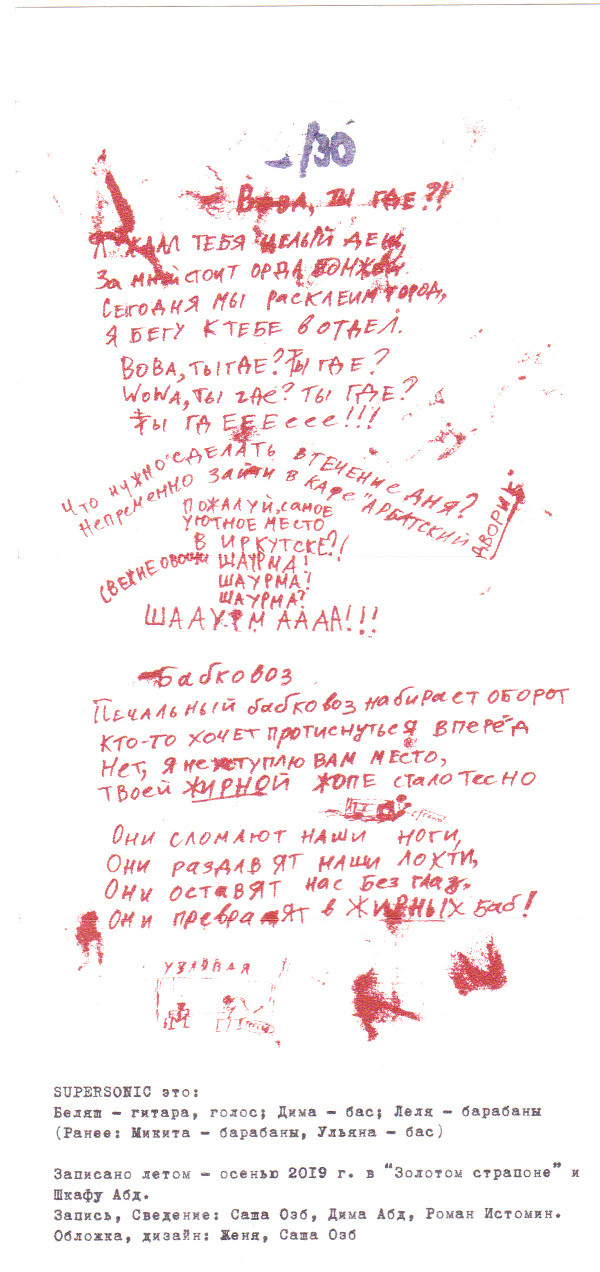 /30
Вова, ты где?!
Я ждал тебя целый день,
За мной стоит орда бомжей
Сегодня мы расклеим город,
Я бегу к тебе в отдел.
Вова, ты где? Ты где?
Wowa, ты где? Ты где?
Ты гдЕЕЕеее!!!
Что нужно сделать в течение дня?
Непременно зайти в кафе "Арбатский дворик".
Пожалуй, самое
уютное место
в Иркутске?!
Свежие овощи
ШАУРМА!
ШАУРМА!
ШАУРМА?
ШААУРМАААА!!!
Бабковоз
Печальный бабковоз набирает оборот
Кто-то хочет протиснуться вперёд
Нет, я не уступлю вам место,
Твоей жирной жопе стало тесно
Они сломают наши ноги,
Они раздавят наши локти,
Они оставят нас без глаз.
Они превратят в жирных баб!
УЗЛОВАЯ
SUPERSONIC это:
Беляш – гитара, голос; Дима – бас; Леля – барабаны
(Ранее: Микита – барабаны, Ульяна – бас)
Записано летом – осенью 2019 г. в "Золотом страпоне" и
Шкафу Абд.
Запись, Сведение: Саша Озб, Дима Абд, Роман Истомин.
Обложка, дизайн: Женя, Саша Озб